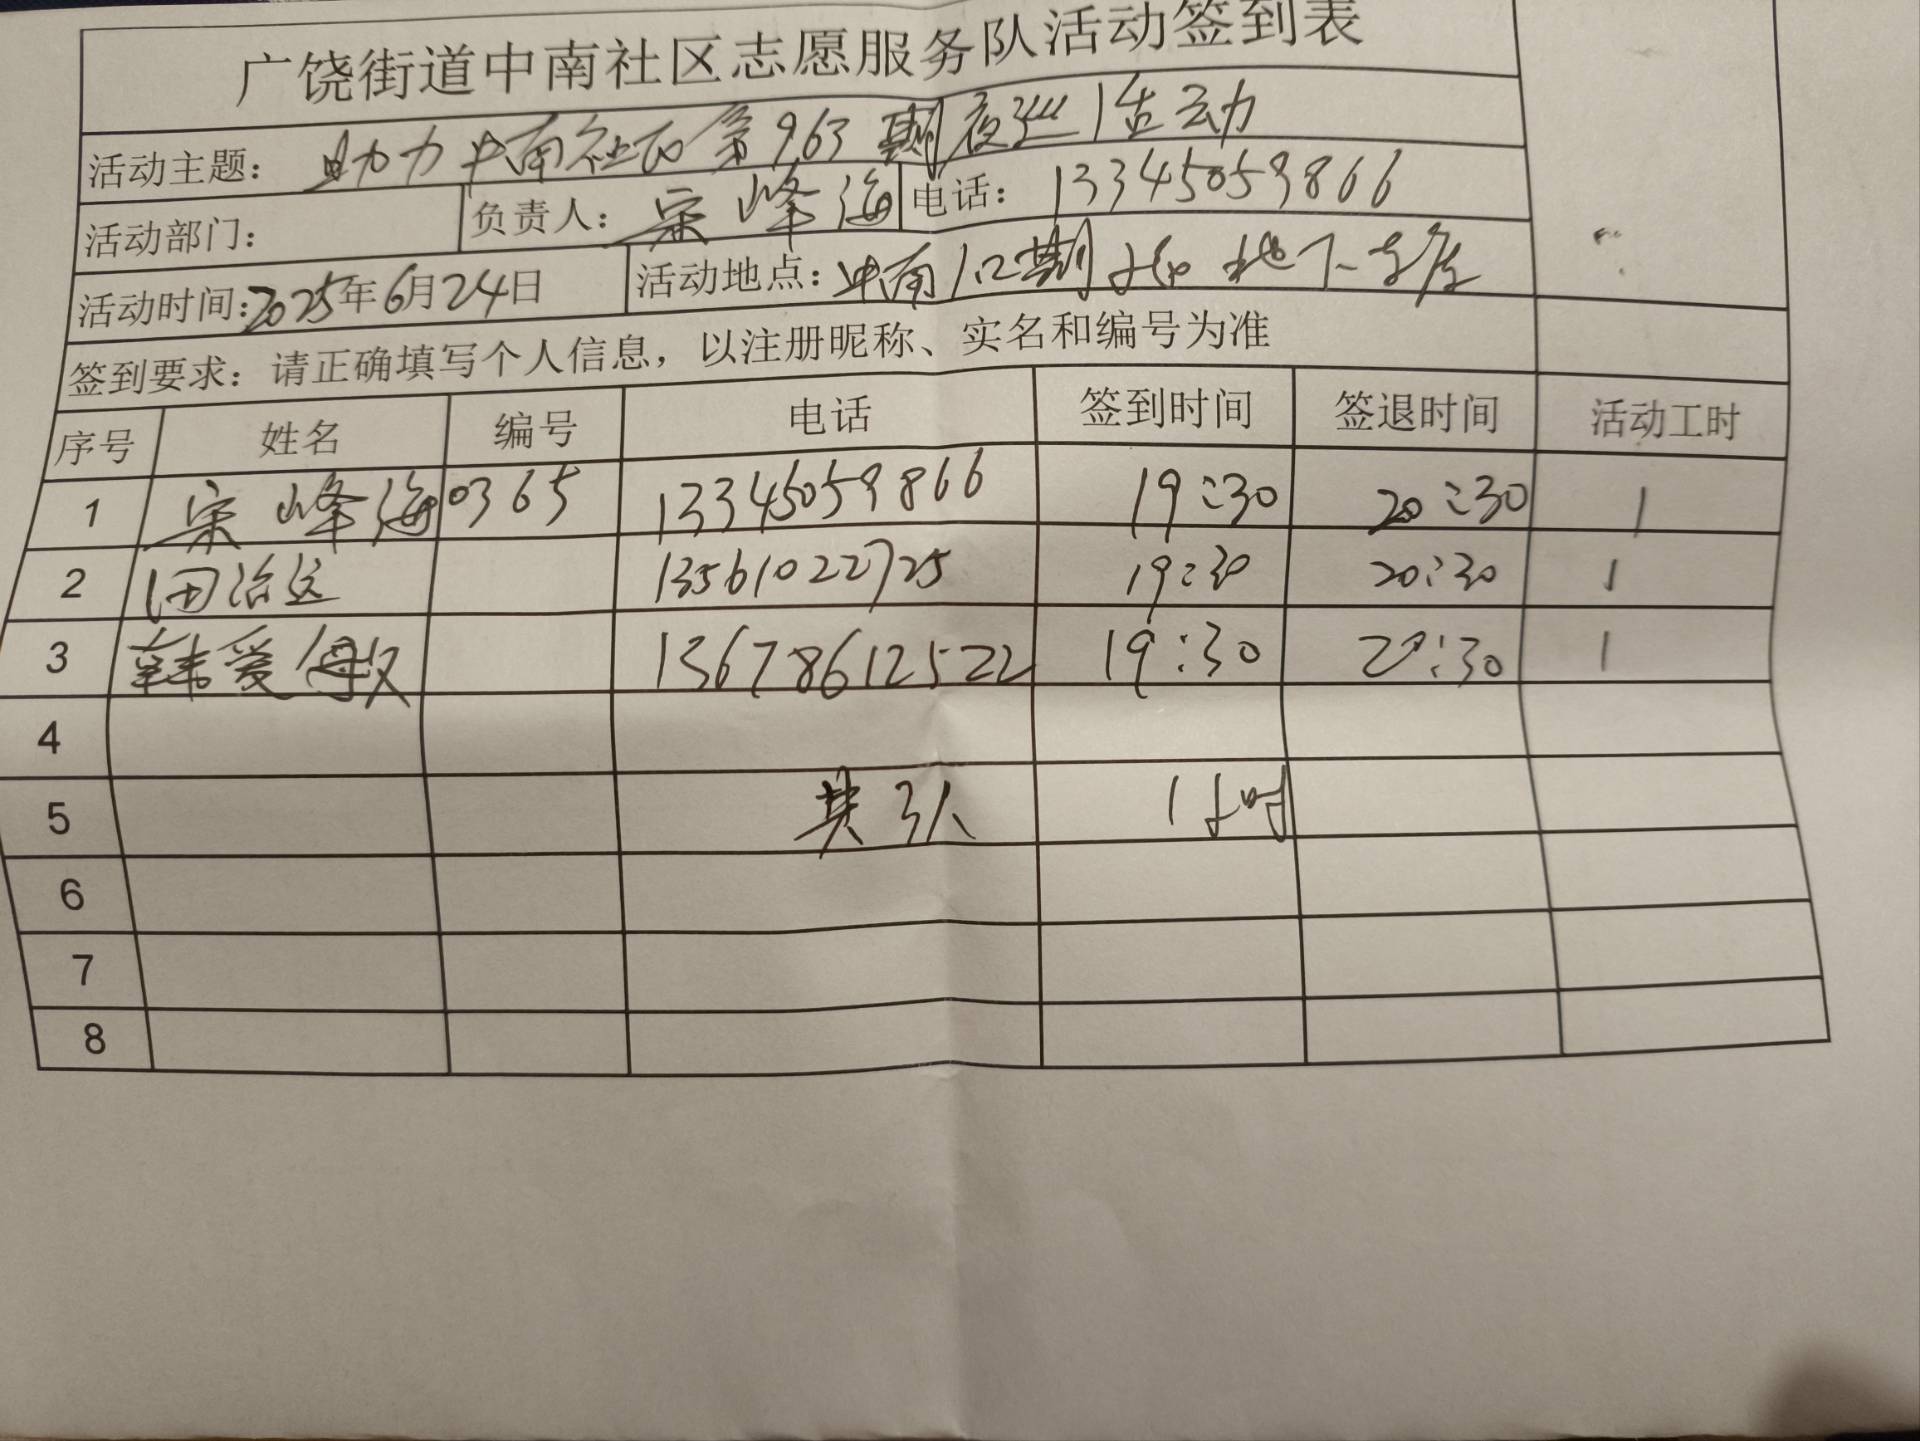 广饶街道中南社区志愿服务队活动签到表
活动主题: 助力中南社区第963期夜巡活动
活动部门: 负责人: 宋峰海 电话: 13345059866
活动时间: 2025年6月24日 活动地点: 中南 期 地下车库
签到要求: 请正确填写个人信息，以注册昵称、实名和编号为准
序号 姓名 编号 电话 签到时间 签退时间 活动工时
1 宋峰海 0365 13345059866 19:30 20:30 1
2 田治远 13561022725 19:30 20:30 1
3 韩爱敏 13678612522 19:30 20:30 1
4
5 共3人 1小时
6
7
8